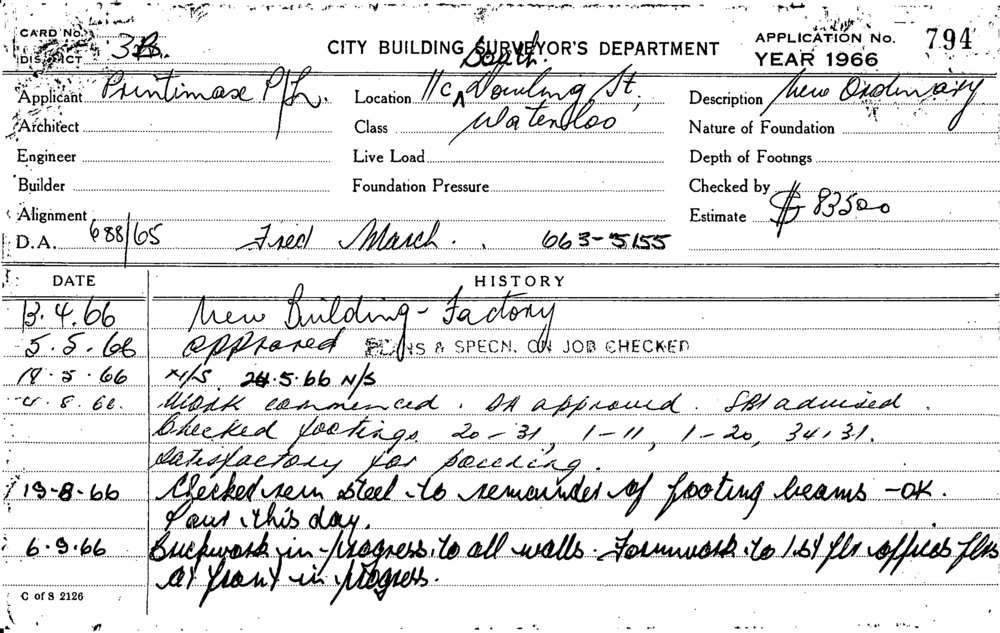 CARD No.
DISTRICT 3B.
CITY BUILDING SURVEYOR'S DEPARTMENT
APPLICATION No. 794
YEAR 1966
Applicant Printimax P/L.
Location 11c South Dowling St,
Description New Ordinary
Architect
Class Waterloo
Nature of Foundation
Engineer
Live Load
Depth of Footings
Builder
Foundation Pressure
Checked by
Alignment
Estimate $ 83500
D.A. 688/65 Fred March. 663-5155
DATE HISTORY
13.4.66 New Building - Factory
5.5.66 approved PLANS & SPECN. ON JOB CHECKED
19.5.66 N/S 24.5.66 N/S
4.8.66. Work commenced. DA approved. SBI advised.
Checked footings 20-31, 1-11, 1-20, 34, 31.
Satisfactory for pouring.
19-8-66 Checked rein steel to remainder of footing beams - OK.
Pour this day.
6.9.66 Brickwork in progress to all walls. Formwork to 1st flr offices flrs
at front in progress.
C of S 2126